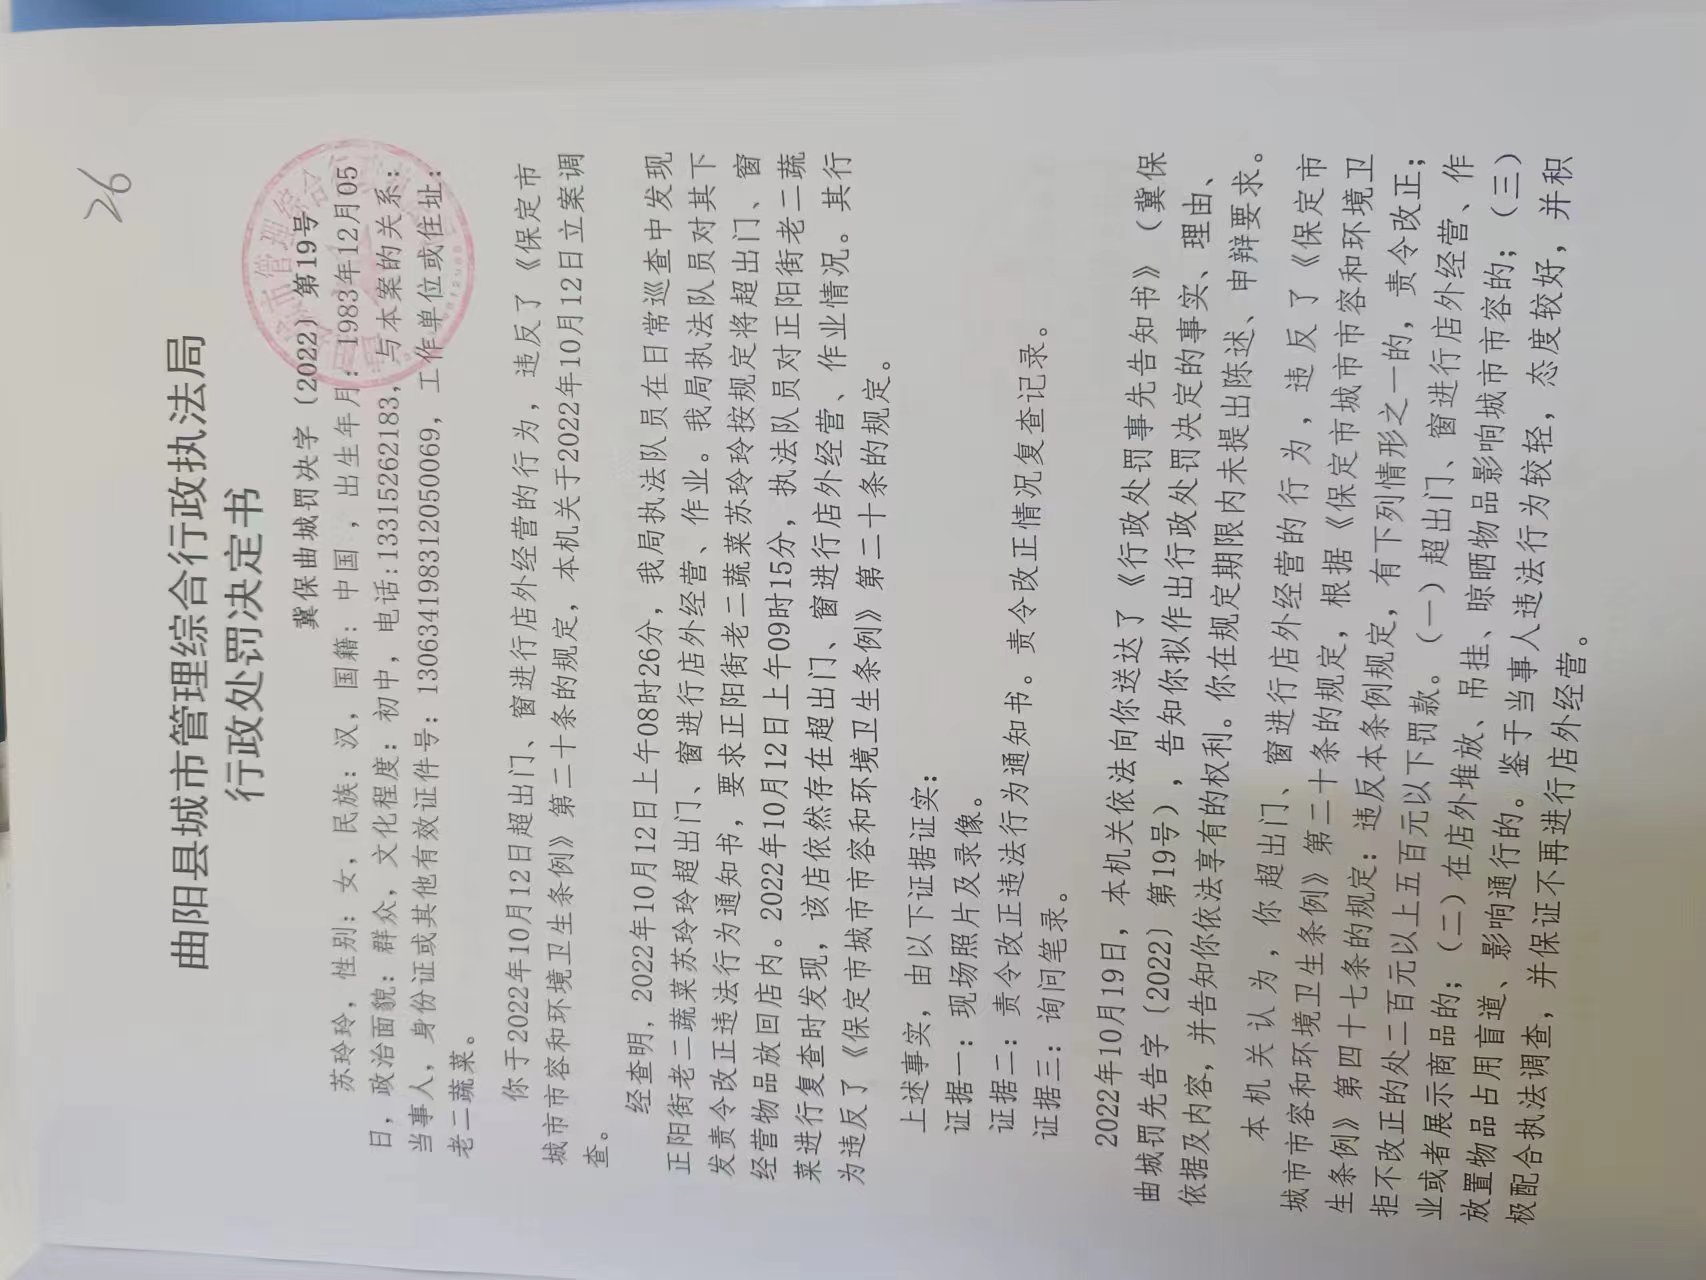 26
曲阳县城市管理综合行政执法局
行政处罚决定书
冀保曲城罚决字〔2022〕第19号
苏玲玲，性别：女，民族：汉，国籍：中国，出生年月：1983年12月05
日，政治面貌：群众，文化程度：初中，电话:13315262183，与本案的关系:
当事人，身份证或其他有效证件号：130634198312050069，工作单位或住址：
老二蔬菜。
你于2022年10月12日超出门、窗进行店外经营的行为，违反了《保定市
城市市容和环境卫生条例》第二十条的规定，本机关于2022年10月12日立案调
查。
经查明，2022年10月12日上午08时26分，我局执法队员在日常巡查中发现
正阳街老二蔬菜苏玲玲超出门、窗进行店外经营、作业。我局执法队员对其下
发责令改正违法行为通知书，要求正阳街老二蔬菜苏玲玲按规定将超出门、窗
经营物品放回店内。2022年10月12日上午09时15分，执法队员对正阳街老二蔬
菜进行复查时发现，该店依然存在超出门、窗进行店外经营、作业情况。其行
为违反了《保定市城市市容和环境卫生条例》第二十条的规定。
上述事实，由以下证据证实：
证据一：现场照片及录像。
证据二：责令改正违法行为通知书。责令改正情况复查记录。
证据三：询问笔录。
2022年10月19日，本机关依法向你送达了《行政处罚事先告知书》（冀保
曲城罚先告字〔2022〕第19号），告知你拟作出行政处罚决定的事实、理由、
依据及内容，并告知你依法享有的权利。你在规定期限内未提出陈述、申辩要求。
本机关认为，你超出门、窗进行店外经营的行为，违反了《保定市
城市市容和环境卫生条例》第二十条的规定，根据《保定市城市市容和环境卫
生条例》第四十七条的规定：违反本条例规定，有下列情形之一的，责令改正；
拒不改正的处二百元以上五百元以下罚款。（一）超出门、窗进行店外经营、作
业或者展示商品的；（二）在店外堆放、吊挂、晾晒物品影响城市市容的；（三）
放置物品占用盲道、影响通行的。鉴于当事人违法行为较轻，态度较好，并积
极配合执法调查，并保证不再进行店外经营。